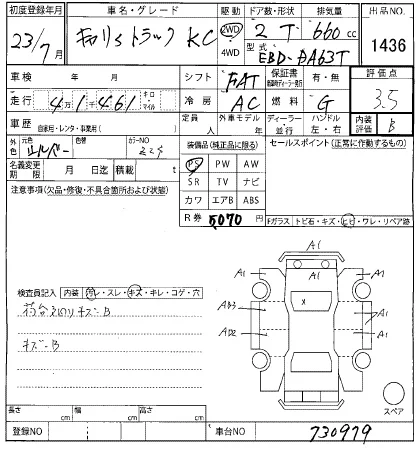 初度登録年月 車名・グレード 駆動 ドア数・形状 排気量 出品NO.
23/7月 キャリイトラック KC 2WD 2 T 660cc 1436
4WD 型式 EBD-DA63T
車検 年 月 シフト FAT 保証書 有・無 評価点
走行 4万1千461 キロ マイル 冷房 AC 燃料 G 3.5
車歴 自家用・レンタ・事業用( ) 定員 人 外車モデル 年 ディーラー・並行 ハンドル 左・右 内装評価 B
外色 元色 シルバー 色替 カラーNO 装備品(純正品に限る) セールスポイント(正常に作動するもの)
名義変更期限 月 日迄 積載 PS PW AW
注意事項(欠品・修復・不具合箇所および状態) SR TV ナビ
カワ エアB ABS
R券 5070円 Fガラス トビ石・キズ・ヒビ・ワレ・リペア跡
A1
A1 A1 A1
検査員記入 内装 汚レ・スレ・キズ・キレ・コゲ・穴
荷台
キズ・B
X
A1
A1
A1 A1 A1
スペア
長さ cm 幅 cm 高さ cm
登録NO 車台NO 730979